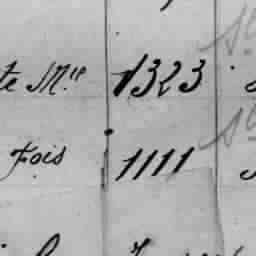 te Mlle 1323
Fois 1111